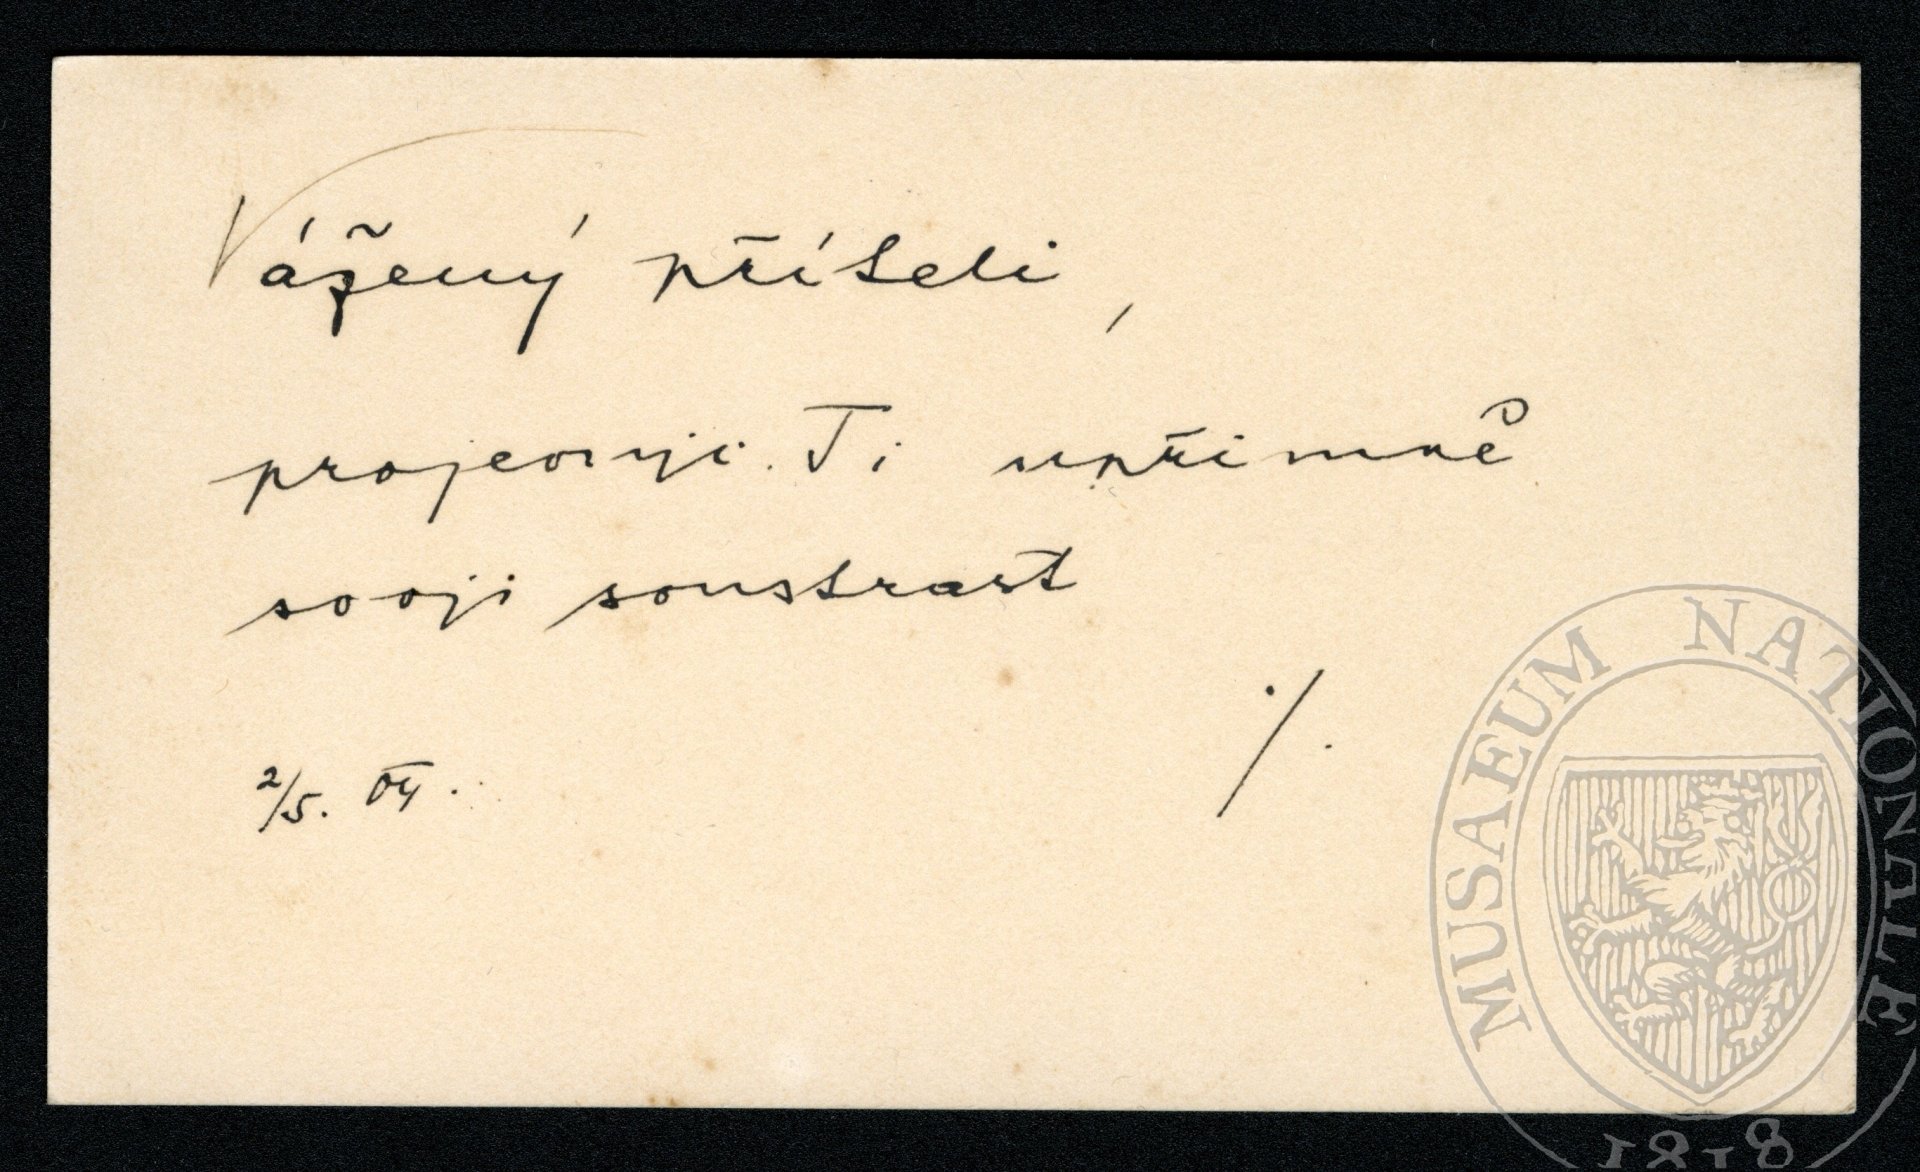 Vážený příteli,
projevuji Ti upřímně
svoji soustrast
./.
2/5. 04.
MUSAEUM NATIONALE
1818